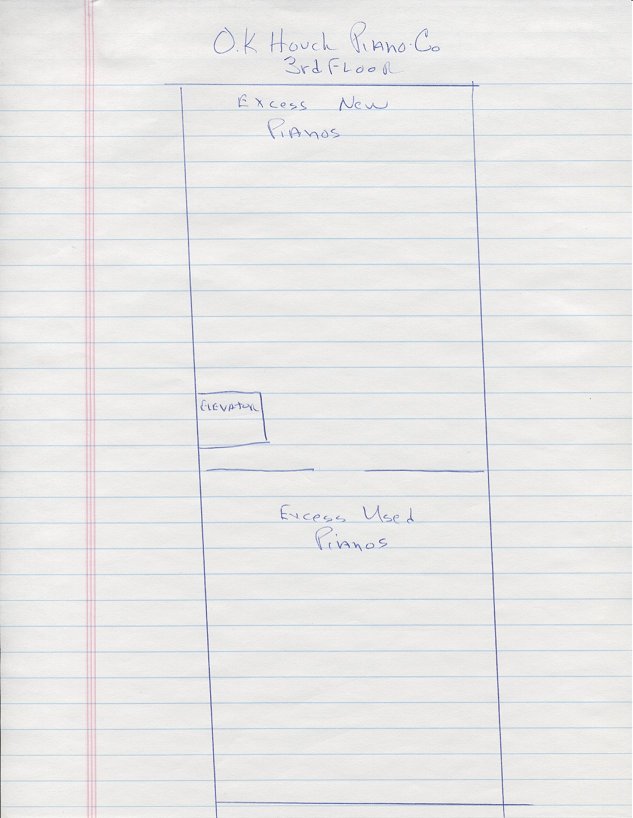 O.K Houck Piano Co
3rd Floor
Excess New
Pianos
Elevator
Excess Used
Pianos